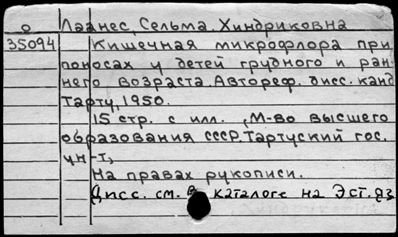 о Лаанес, Сельма Хиндриковна
35094 Кишечная микрофлора при
поносах у детей грудного и ран-
него возраста. Автореф. дисс. канд.
Тарту, 1950.
15 стр. с илл. (М-во высшего
образования СССР. Тартуский гос.
ун-т)
На правах рукописи.
Дисс. см. в каталоге на Эст. яз